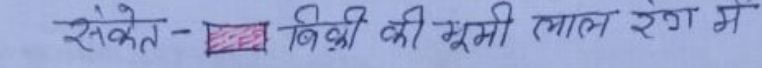 संकेत - बिक्री की भूमी लाल रंग में